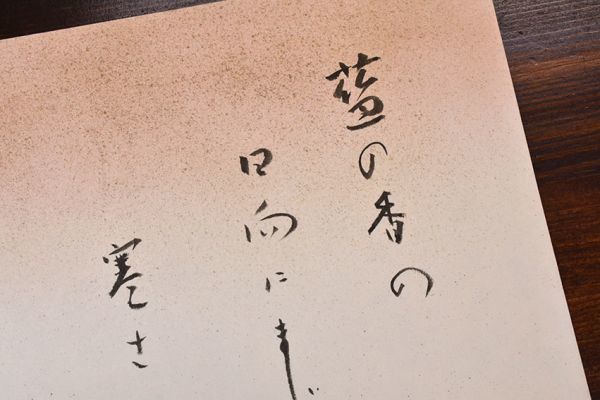 藍の香の
日向にまじ
寒さ